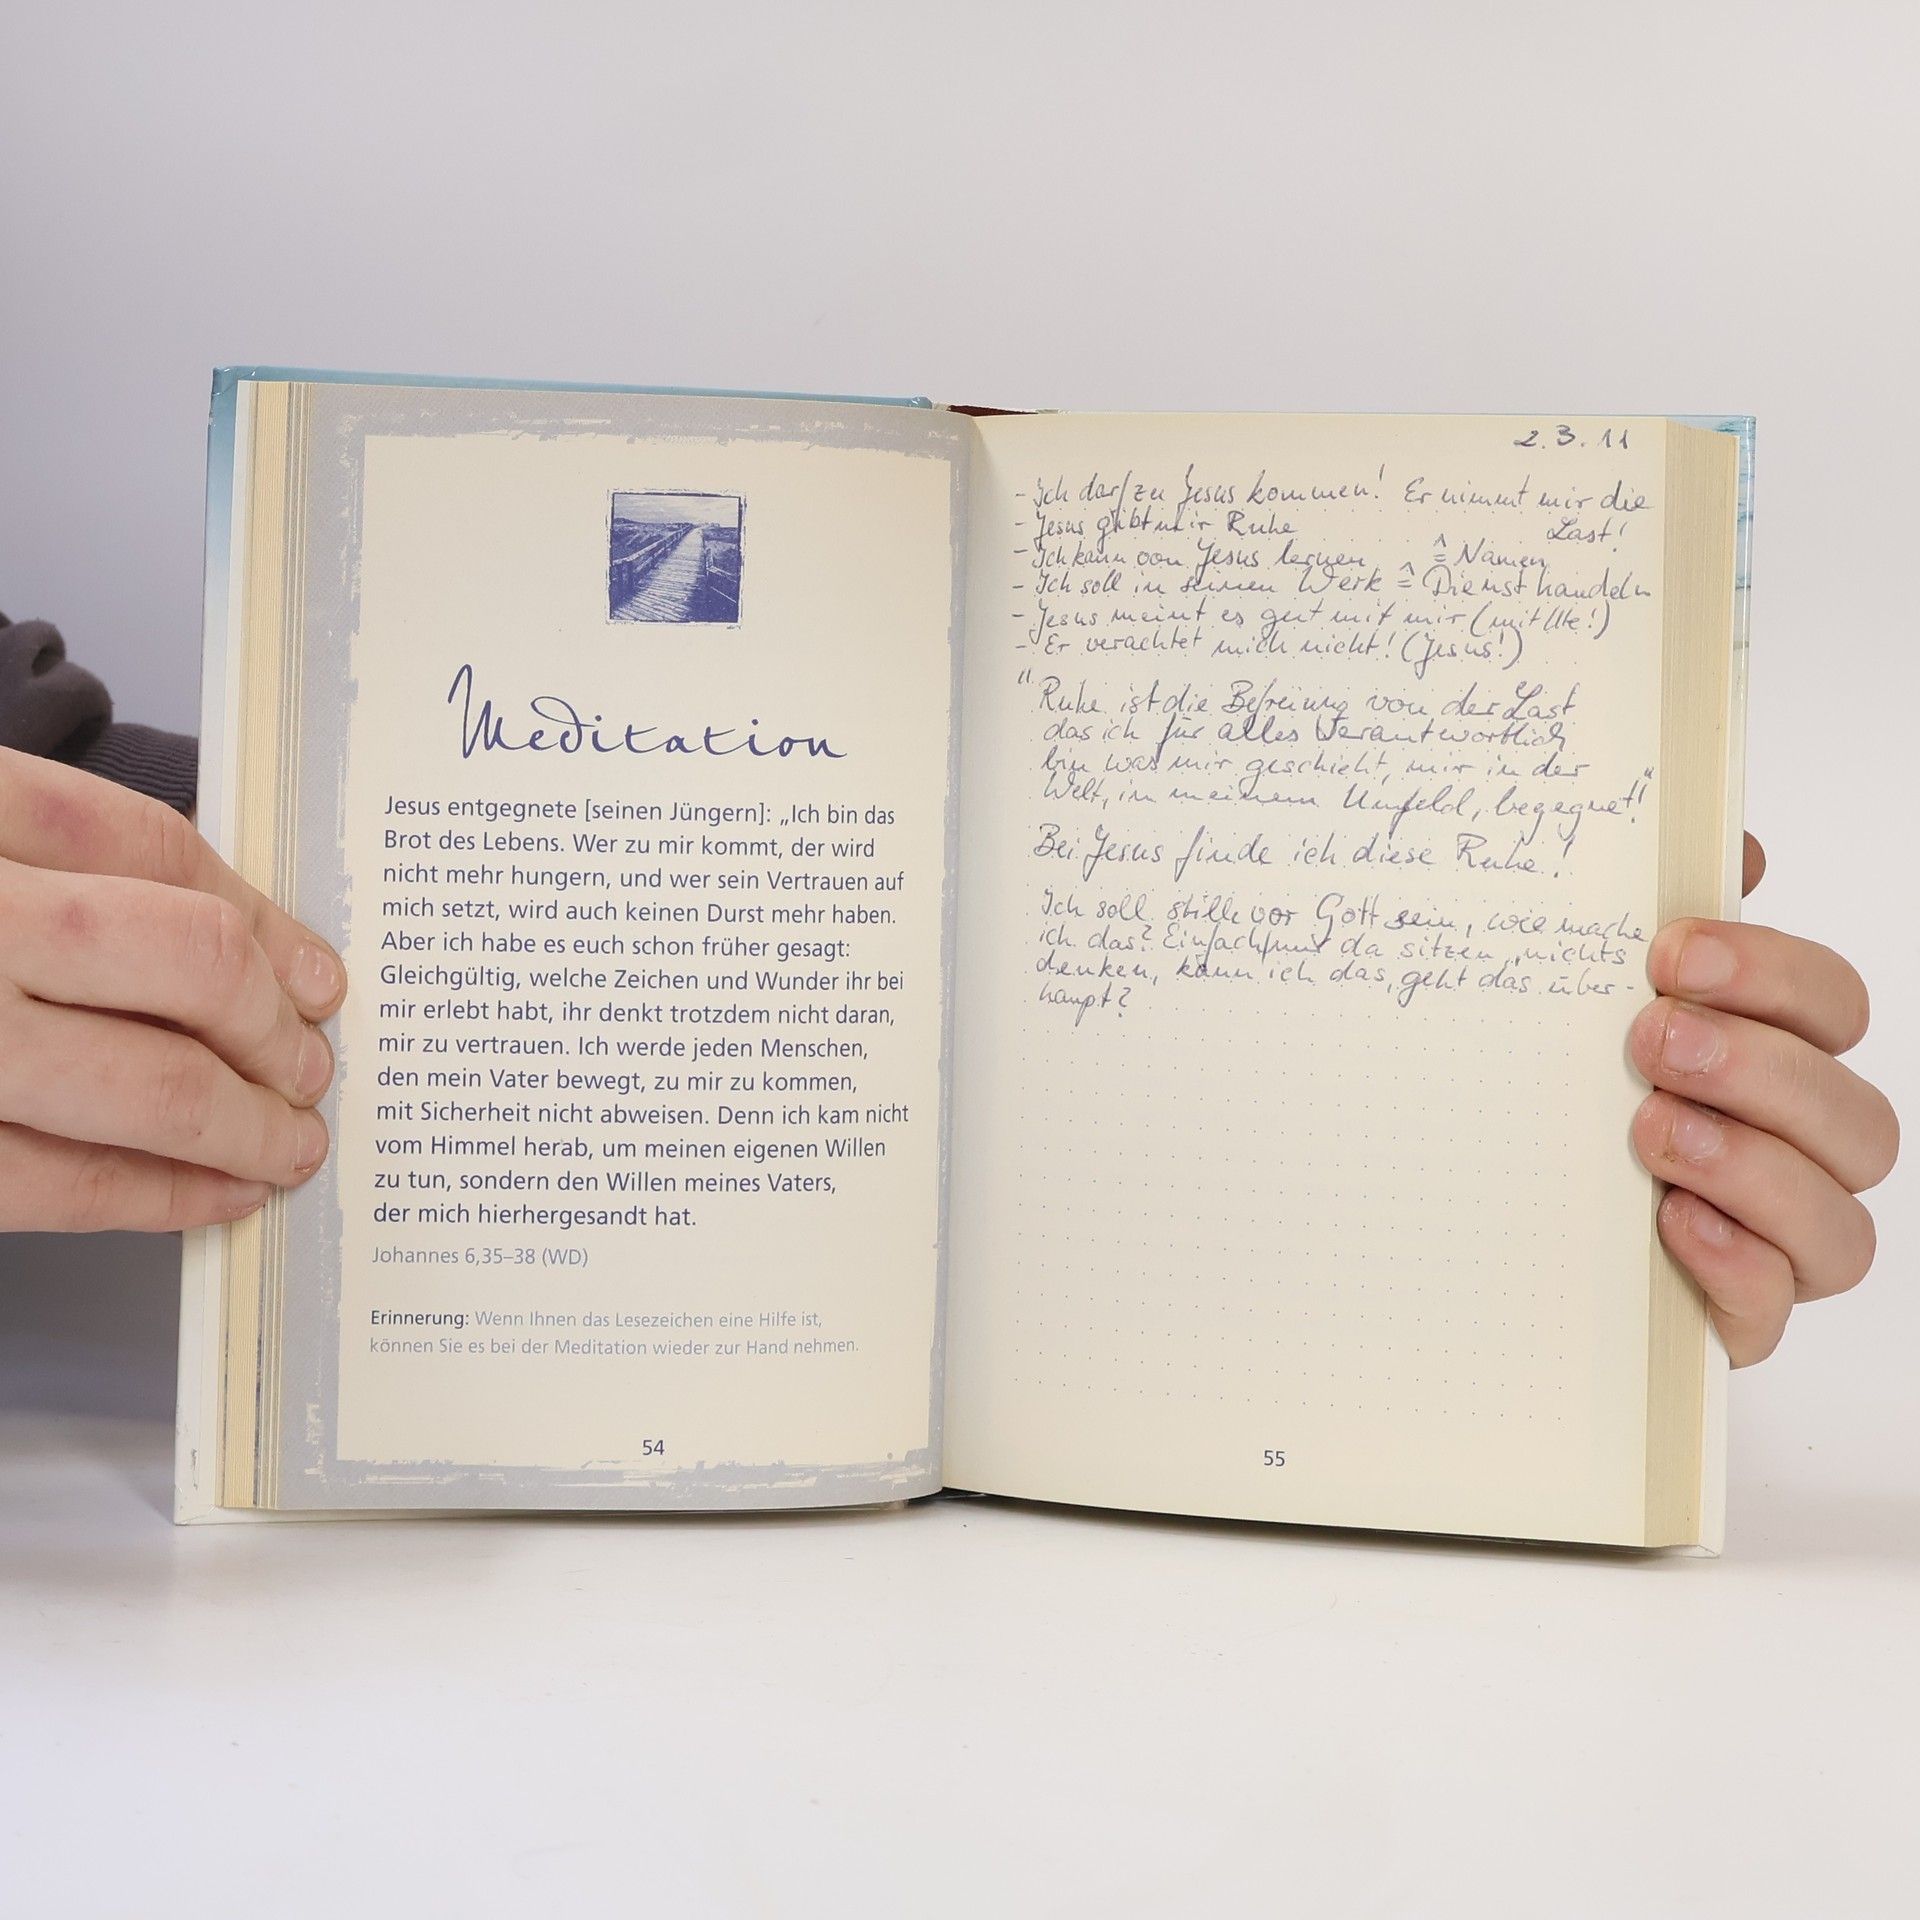 Meditation
Jesus entgegnete [seinen Jüngern]: „Ich bin das
Brot des Lebens. Wer zu mir kommt, der wird
nicht mehr hungern, und wer sein Vertrauen auf
mich setzt, wird auch keinen Durst mehr haben.
Aber ich habe es euch schon früher gesagt:
Gleichgültig, welche Zeichen und Wunder ihr bei
mir erlebt habt, ihr denkt trotzdem nicht daran,
mir zu vertrauen. Ich werde jeden Menschen,
den mein Vater bewegt, zu mir zu kommen,
mit Sicherheit nicht abweisen. Denn ich kam nicht
vom Himmel herab, um meinen eigenen Willen
zu tun, sondern den Willen meines Vaters,
der mich hierhergesandt hat.
Johannes 6,35–38 (WD)
Erinnerung: Wenn Ihnen das Lesezeichen eine Hilfe ist,
können Sie es bei der Meditation wieder zur Hand nehmen.
54
2.3.11
- Ich darf zu Jesus kommen! Er nimmt mir die
Last!
- Jesus gibt mir Ruhe
- Ich kann von Jesus lernen ≙ Namen
- Ich soll in seinen Werk ≙ Dienst handeln
- Jesus meint es gut mit mir (mit Ute!)
- Er verachtet mich nicht! (Jesus!)
"Ruhe ist die Befreiung von der Last
das ich für alles Verantwortlich
bin was mir geschieht, mir in der
Welt, in meinem Umfeld, begegnet!"
Bei Jesus finde ich diese Ruhe!
Ich soll stille vor Gott sein, wie mache
ich das? Einfach nur da sitzen, nichts
denken, kann ich das, geht das über-
haupt?
55